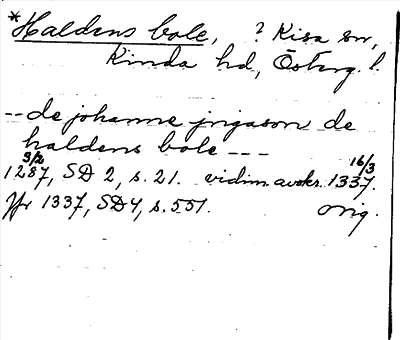 *Haldens bole, ? Kisa sn,
Kinda hd, Österg. l.
-- de johanne jngason de
haldens bole ---
3/2 16/3
1287, SD 2, s. 21. vidim. avskr. 1337.
Jfr 1337, SD 4, s. 551. orig.